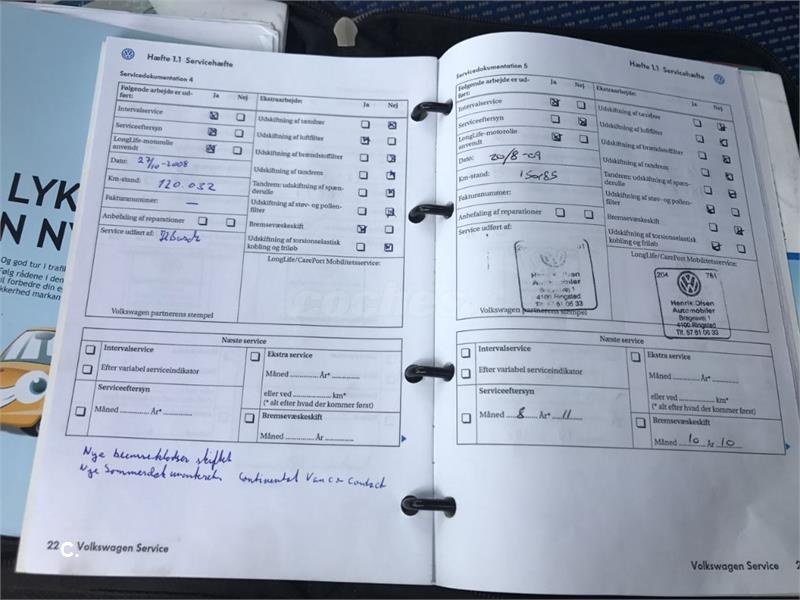 LYK
N N
Og god tur i trafi
følg rådene i den
il forbedre din e
kkerhed markan
Hæfte 1.1 Servicehæfte
Servicedokumentation 4
Følgende arbejde er ud-
ført:
Ja Nej
Intervalservice
Serviceeftersyn
LongLife-motorolie
anvendt
Dato: 27/10-2008
Km-stand: 120.032
Fakturanummer: —
Anbefaling af reparationer
Service udført af:
Volkswagen partnerens stempel
Ekstraarbejde: Ja Nej
Udskiftning af tændrør
Udskiftning af luftfilter
Udskiftning af brændstoffilter
Udskiftning af tandrem
Tandrem: udskiftning af spæn-
derulle
Udskiftning af støv- og pollen-
filter
Bremsevæskeskift
Udskiftning af torsionselastisk
kobling og friløb
LongLife/CarePort Mobilitetsservice:
Næste service
Intervalservice
Efter variabel serviceindikator
Serviceeftersyn
Måned ............. År* .............
Ekstra service
Måned ............. År* .............
eller ved ................... km*
(* alt efter hvad der kommer først)
Bremsevæskeskift
Måned ............. År .............
Nye bremseklodser skiftet
Nye Sommerdæk monteret Continental Vanco Contact
22 Volkswagen Service
Hæfte 1.1 Servicehæfte
Servicedokumentation 5
Følgende arbejde er ud-
ført:
Ja Nej
Intervalservice
Serviceeftersyn
LongLife-motorolie
anvendt
Dato: 20/8-09
Km-stand: 150185
Fakturanummer:
Anbefaling af reparationer
Service udført af:
Henrik Olsen
Automobiler
Bragesvej 1
4100 Ringsted
Tlf. 57 61 06 33
Volkswagen partnerens stempel
Ekstraarbejde: Ja Nej
Udskiftning af tændrør
Udskiftning af luftfilter
Udskiftning af brændstoffilter
Udskiftning af tandrem
Tandrem: udskiftning af spæn-
derulle
Udskiftning af støv- og pollen-
filter
Bremsevæskeskift
Udskiftning af torsionselastisk
kobling og friløb
LongLife/CarePort Mobilitetsservice:
204 781
Henrik Olsen
Automobiler
Bragesvej 1
4100 Ringsted
Tlf. 57 61 06 33
Næste service
Intervalservice
Efter variabel serviceindikator
Serviceeftersyn
Måned 8 År* 11
Ekstra service
Måned ............. År* .............
eller ved ................... km*
(* alt efter hvad der kommer først)
Bremsevæskeskift
Måned 10 År 10
Volkswagen Service 2
C.